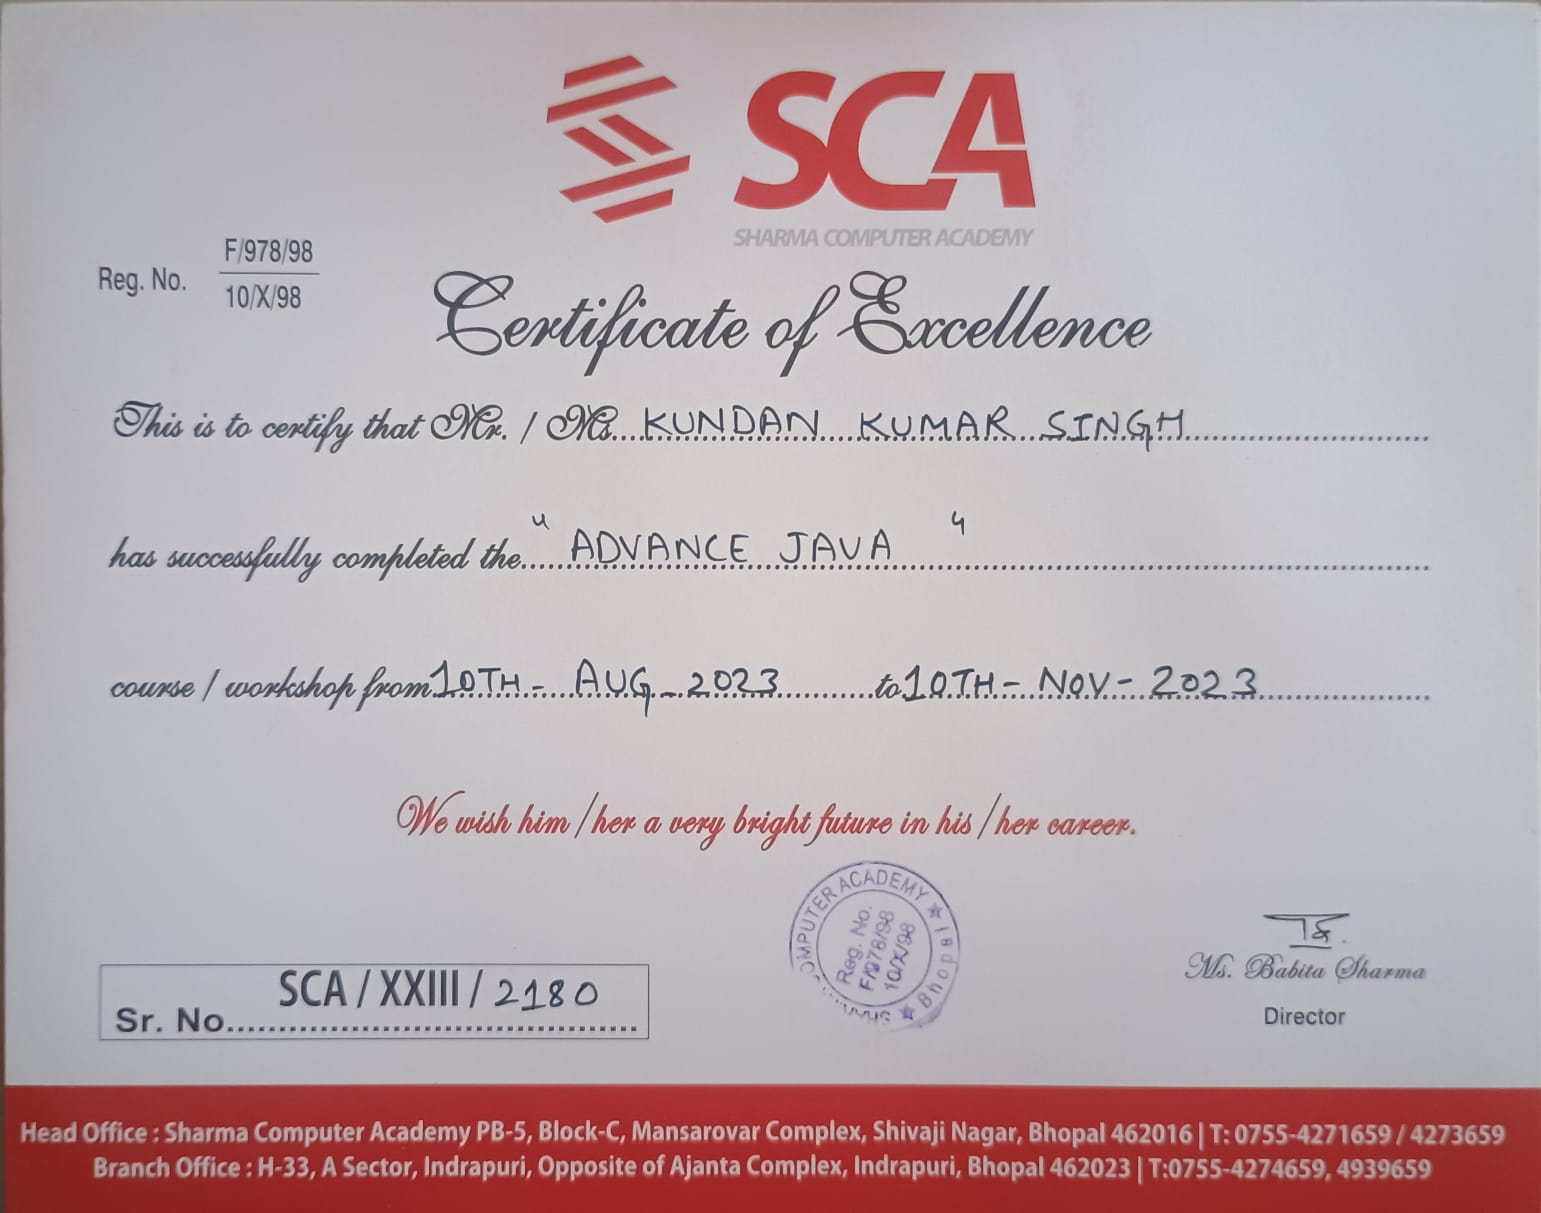 SCA
SHARMA COMPUTER ACADEMY
Reg. No. F/978/98
10/X/98
Certificate of Excellence
This is to certify that Mr. / Ms. KUNDAN KUMAR SINGH
has successfully completed the "ADVANCE JAVA"
course / workshop from 10TH - AUG - 2023 to 10TH - NOV - 2023
We wish him/her a very bright future in his/her career.
COMPUTER ACADEMY ★ Bhopal ★
Reg. No.
F/978/98
10/X/98
Ms. Babita Sharma
Director
SCA / XXIII / 2180
Sr. No.
Head Office : Sharma Computer Academy PB-5, Block-C, Mansarovar Complex, Shivaji Nagar, Bhopal 462016 | T: 0755-4271659 / 4273659
Branch Office : H-33, A Sector, Indrapuri, Opposite of Ajanta Complex, Indrapuri, Bhopal 462023 | T:0755-4274659, 4939659